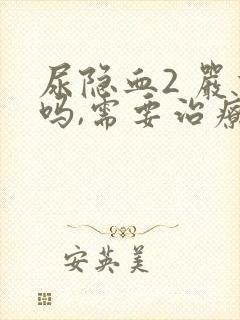 尿隐血2 严
吗,需要治疗
安英美